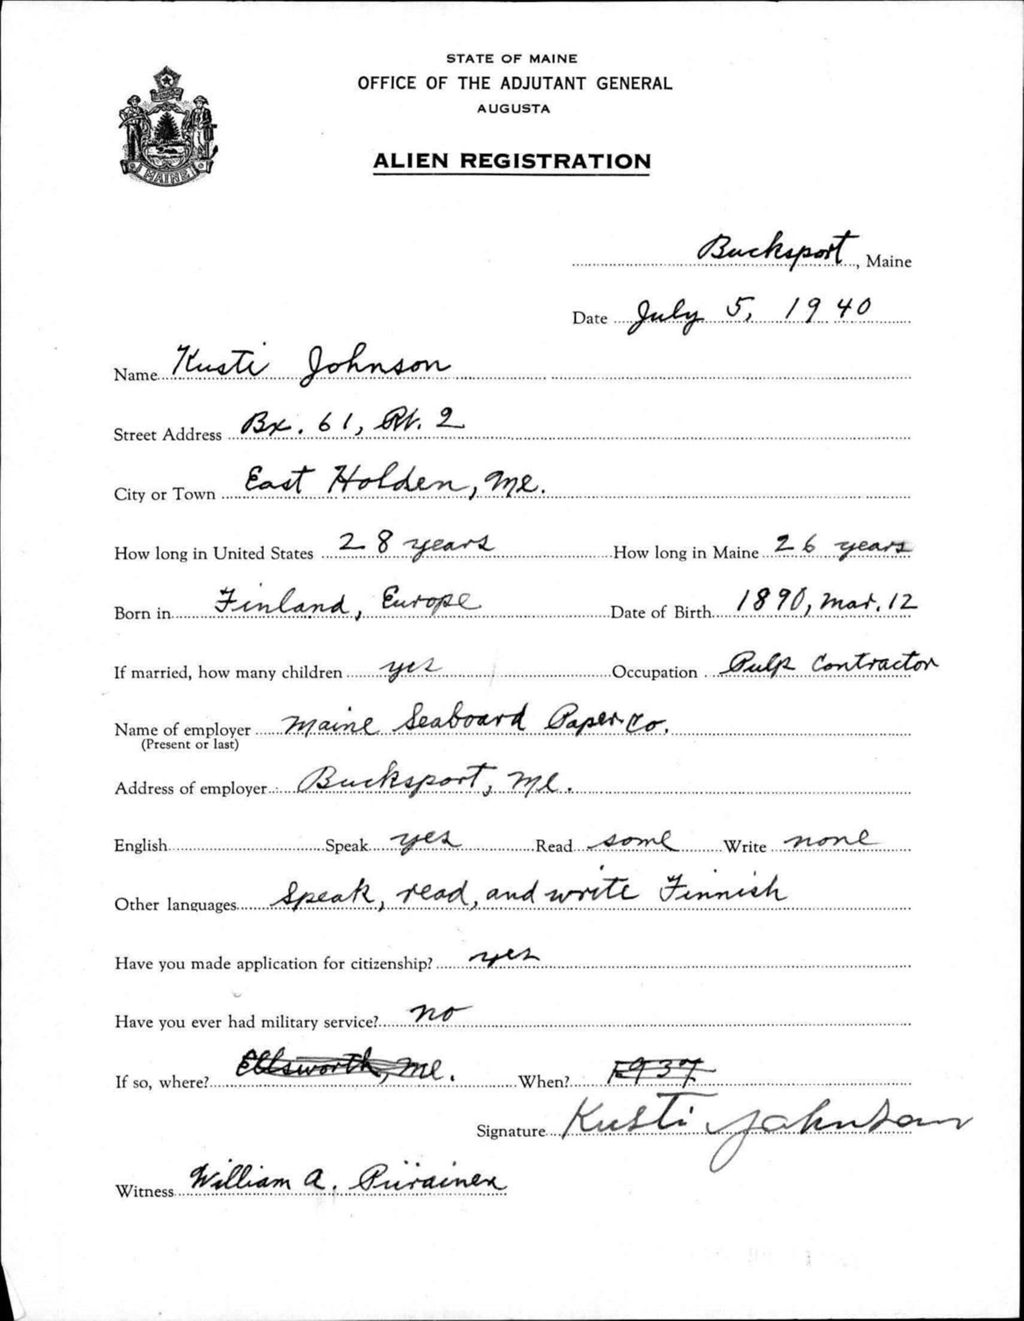 STATE OF MAINE
OFFICE OF THE ADJUTANT GENERAL
AUGUSTA
ALIEN REGISTRATION
MAINE
Bucksport, Maine
Date July 5, 1940
Name Kusti Johnson
Street Address Bx. 61, Rt. 2
City or Town East Holden, Me.
How long in United States 28 years How long in Maine 26 years
Born in Finland, Europe Date of Birth 1890, Mar. 12
If married, how many children yes Occupation Pulp Contractor
Name of employer Maine Seaboard Paper Co.
(Present or last)
Address of employer Bucksport, Me.
English Speak yes Read some Write none
Other languages Speak, read, and write Finnish
Have you made application for citizenship? yes
Have you ever had military service? no
If so, where? Ellsworth, Me. When? 1937
Signature Kusti Johnson
Witness William A. Piirainen